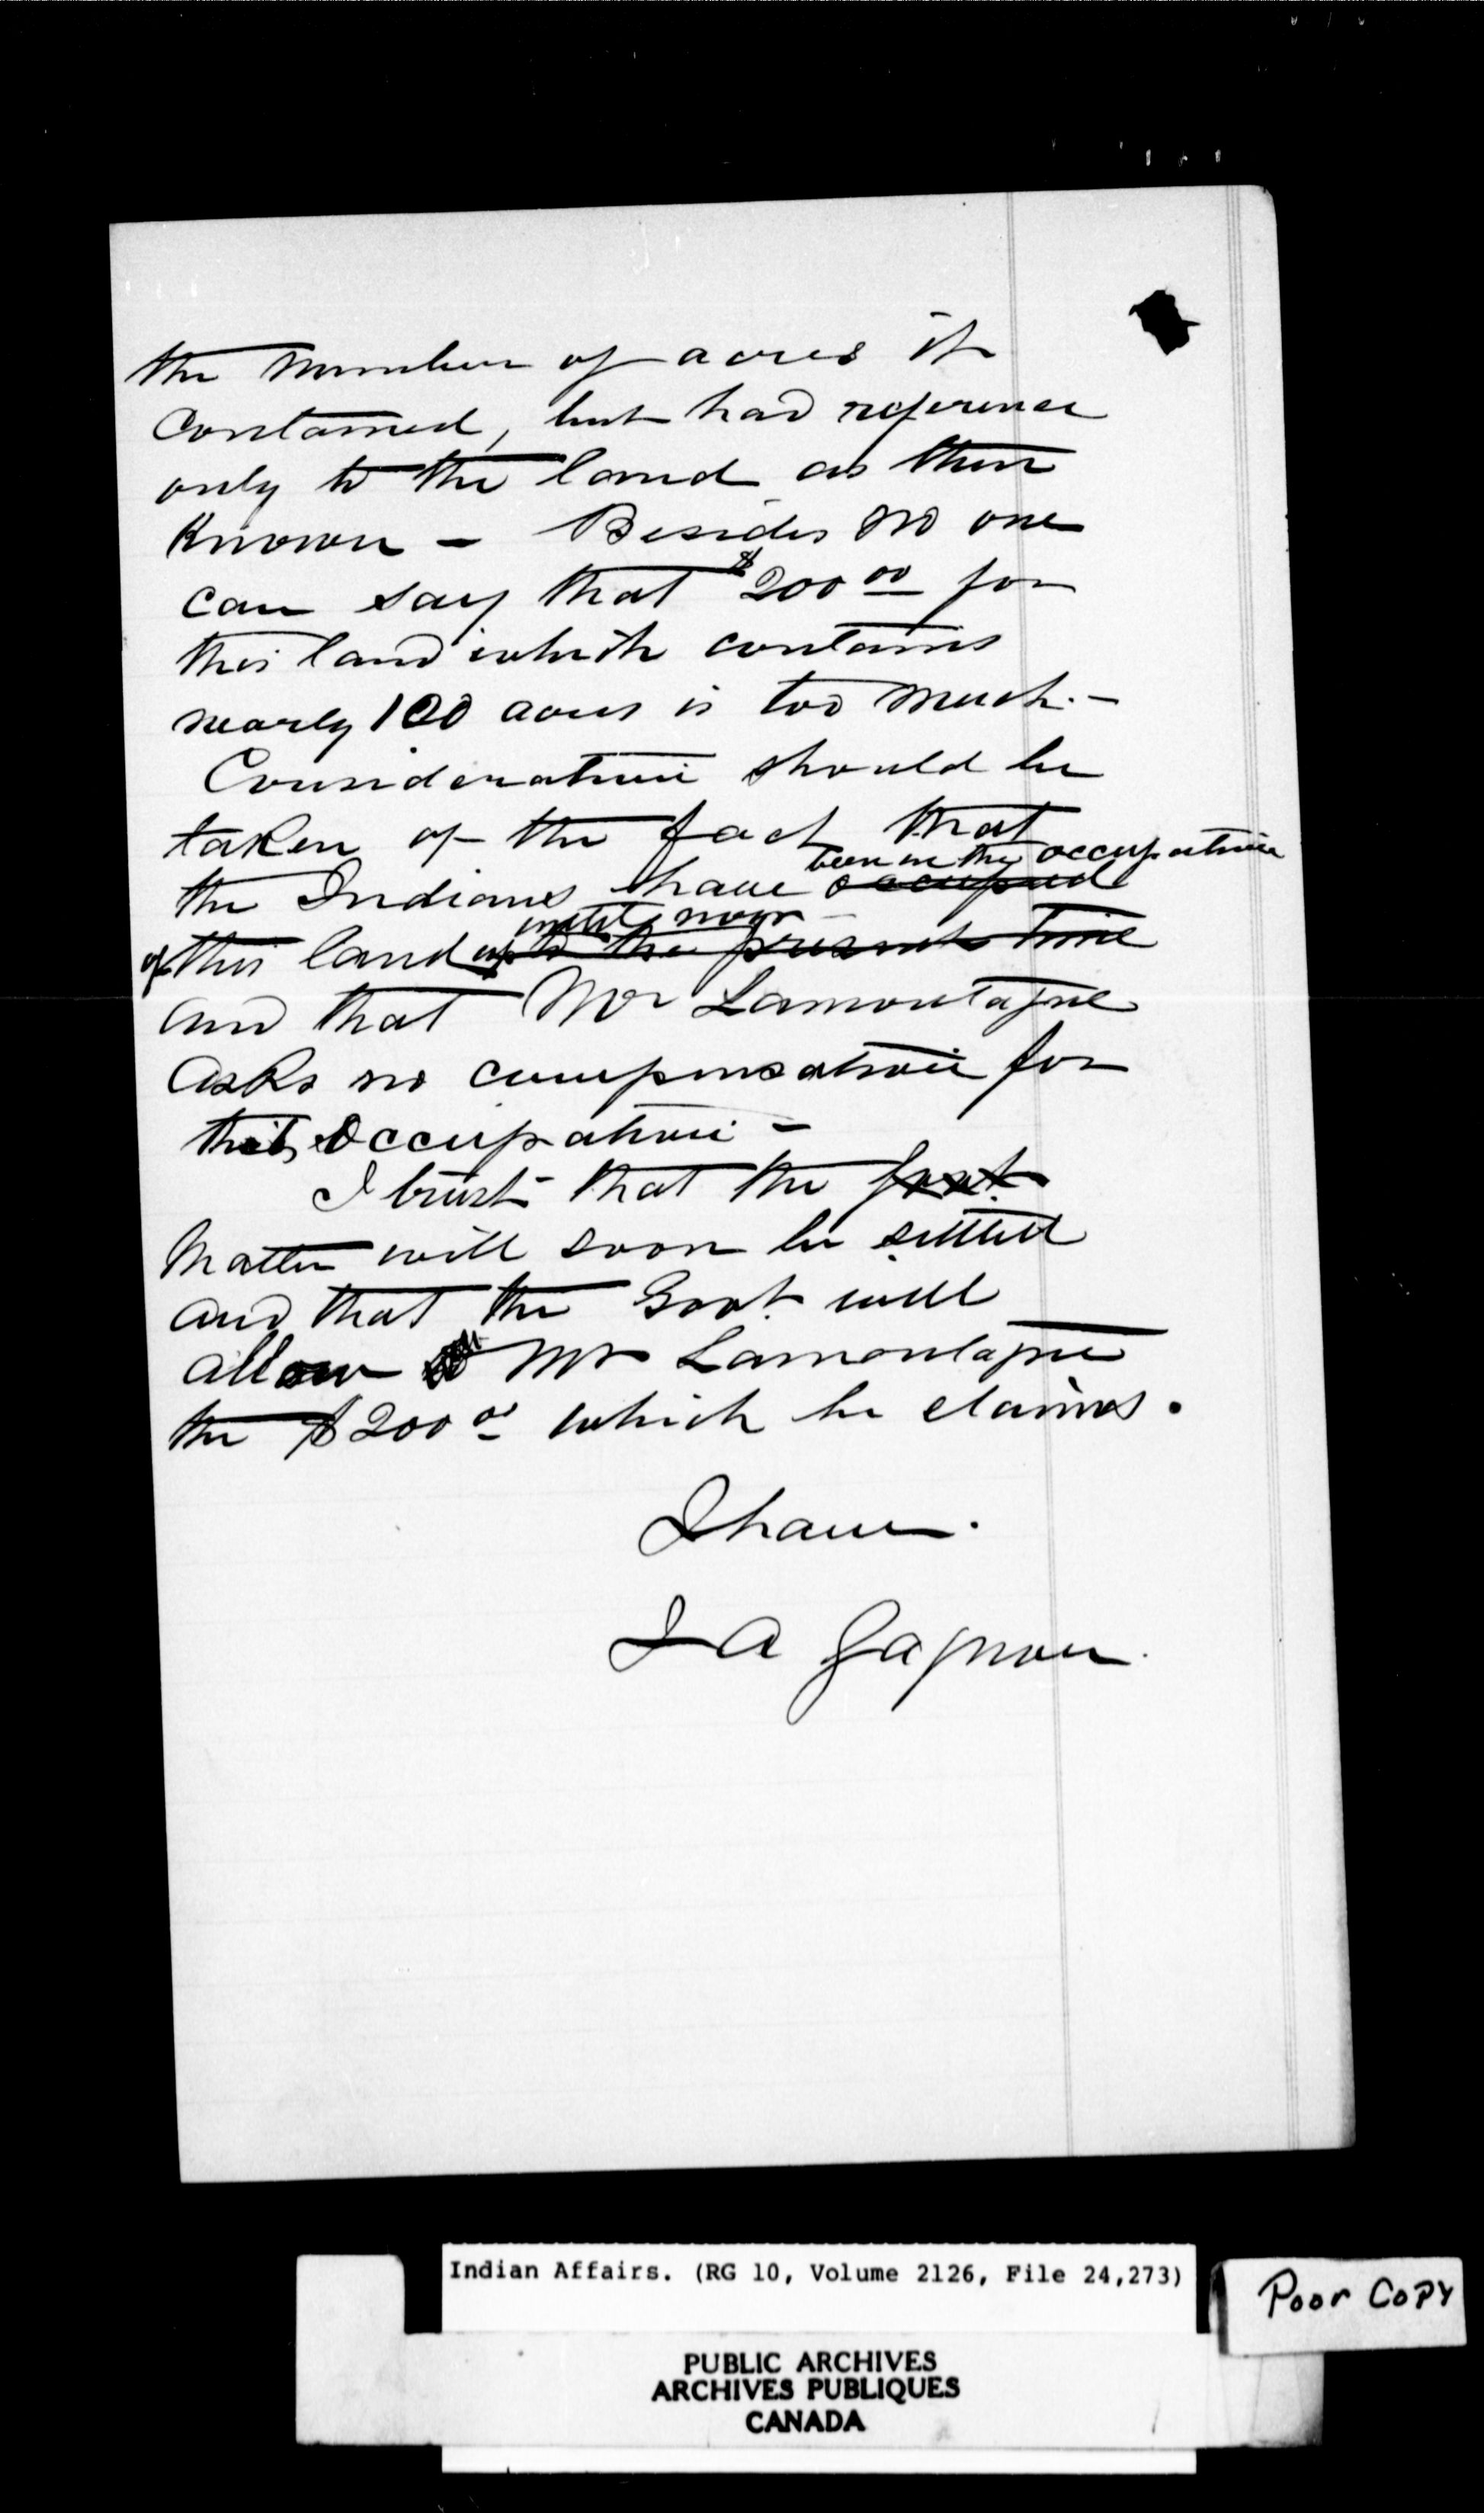 the number of acres it
contained, but had reference
only to the land as then
known - Besides no one
can say that $200 00 for
this land which contains
nearly 100 acres is too much. -
Consideration should be
taken of the fact that
been in the occupation
the Indians have occupied
until now -
of this land up to the present time
and that Mr Lamontagne
asks no compensation for
this occupation -
I trust that the
matter will soon be settled
and that the Govt. will
allow Mr Lamontagne
the $200 00 which he claims.
I have.
A Gagnon.
Indian Affairs. (RG 10, Volume 2126, File 24,273)
Poor Copy
PUBLIC ARCHIVES
ARCHIVES PUBLIQUES
CANADA